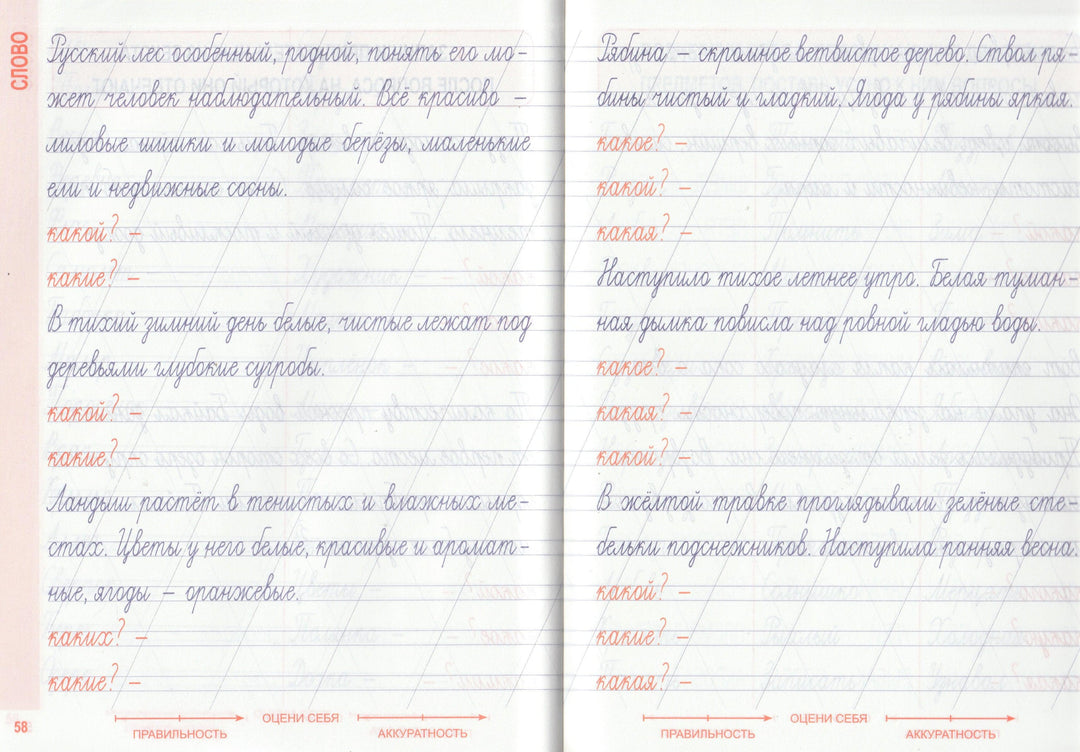 СЛОВО
Русский лес особенный, родной, понять его мо-
жет человек наблюдательный. Всё красиво –
лиловые шишки и молодые берёзы, маленькие
ели и недвижные сосны.
какой? –
какие? –
В тихий зимний день белые, чистые лежат под
деревьями глубокие сугробы.
какой? –
какие? –
Ландыш растёт в тенистых и влажных ме-
стах. Цветы у него белые, красивые и аромат-
ные, ягоды – оранжевые.
каких? –
какие? –
58
ОЦЕНИ СЕБЯ
ПРАВИЛЬНОСТЬ
АККУРАТНОСТЬ
Рябина – скромное ветвистое дерево. Ствол ря-
бины чистый и гладкий. Ягода у рябины яркая.
какое? –
какой? –
какая? –
Наступило тихое летнее утро. Белая туман-
ная дымка повисла над ровной гладью воды.
какое? –
какая? –
какой? –
В жёлтой травке проглядывали зелёные сте-
бельки подснежников. Наступила ранняя весна.
какой? –
какие? –
какая? –
ОЦЕНИ СЕБЯ
ПРАВИЛЬНОСТЬ
АККУРАТНОСТЬ